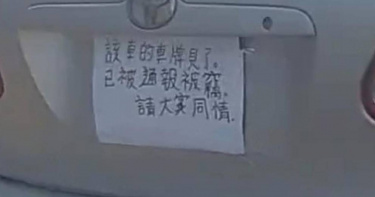 該車的車牌見了。
已被通報被竊。
請大家同情.